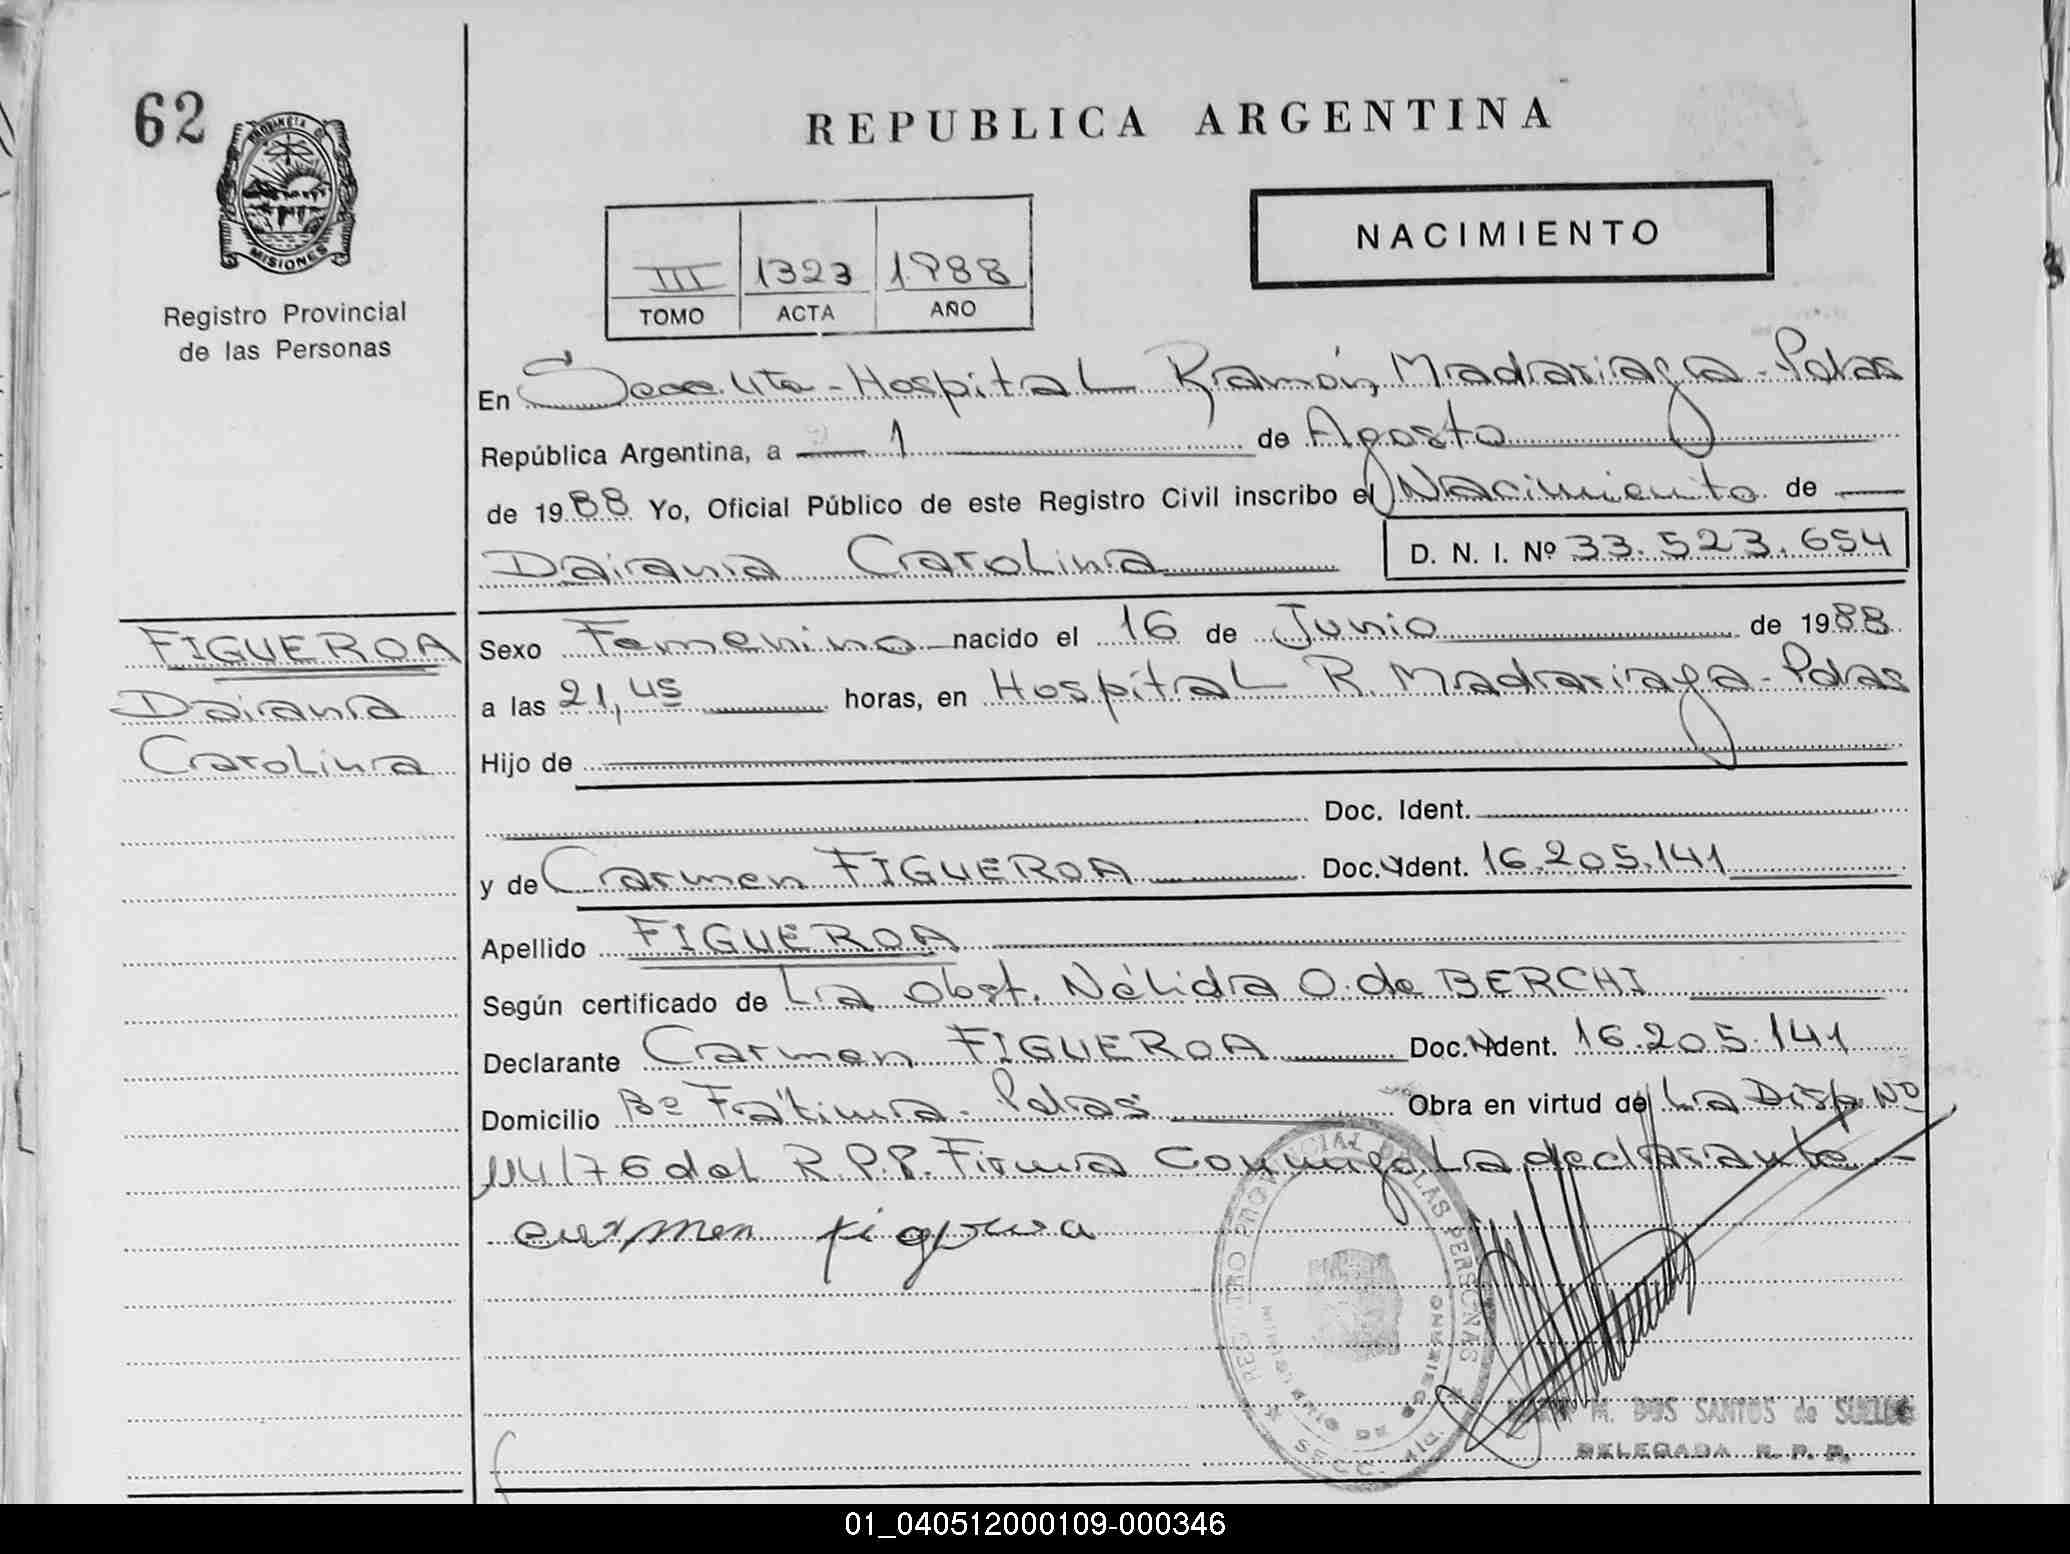 62
PROVINCIA DE
MISIONES
Registro Provincial
de las Personas
REPUBLICA ARGENTINA
III 1323 1988
TOMO ACTA AÑO
NACIMIENTO
En Secc. 4ta - Hospital Ramón Madariaga - Pdas
República Argentina, a 1 de Agosto
de 1988 Yo, Oficial Público de este Registro Civil inscribo el Nacimiento de
Daiana Carolina
D. N. I. Nº 33.523.654
FIGUEROA
Daiana
Carolina
Sexo Femenino nacido el 16 de Junio de 1988
a las 21,45 horas, en Hospital R. Madariaga - Pdas
Hijo de
Doc. Ident.
y de Carmen FIGUEROA Doc. Ident. 16.205.141
Apellido FIGUEROA
Según certificado de La Obst. Nélida O. de BERCHI
Declarante Carmen FIGUEROA Doc. Ident. 16.205.141
Domicilio Bº Fátima - Pdas Obra en virtud de La Disp Nº
114/76 del R.P.P. Firma conmigo La declarante
carmen figueroa
M. DOS SANTOS de
DELEGADA R. P. P.
01_040512000109-000346